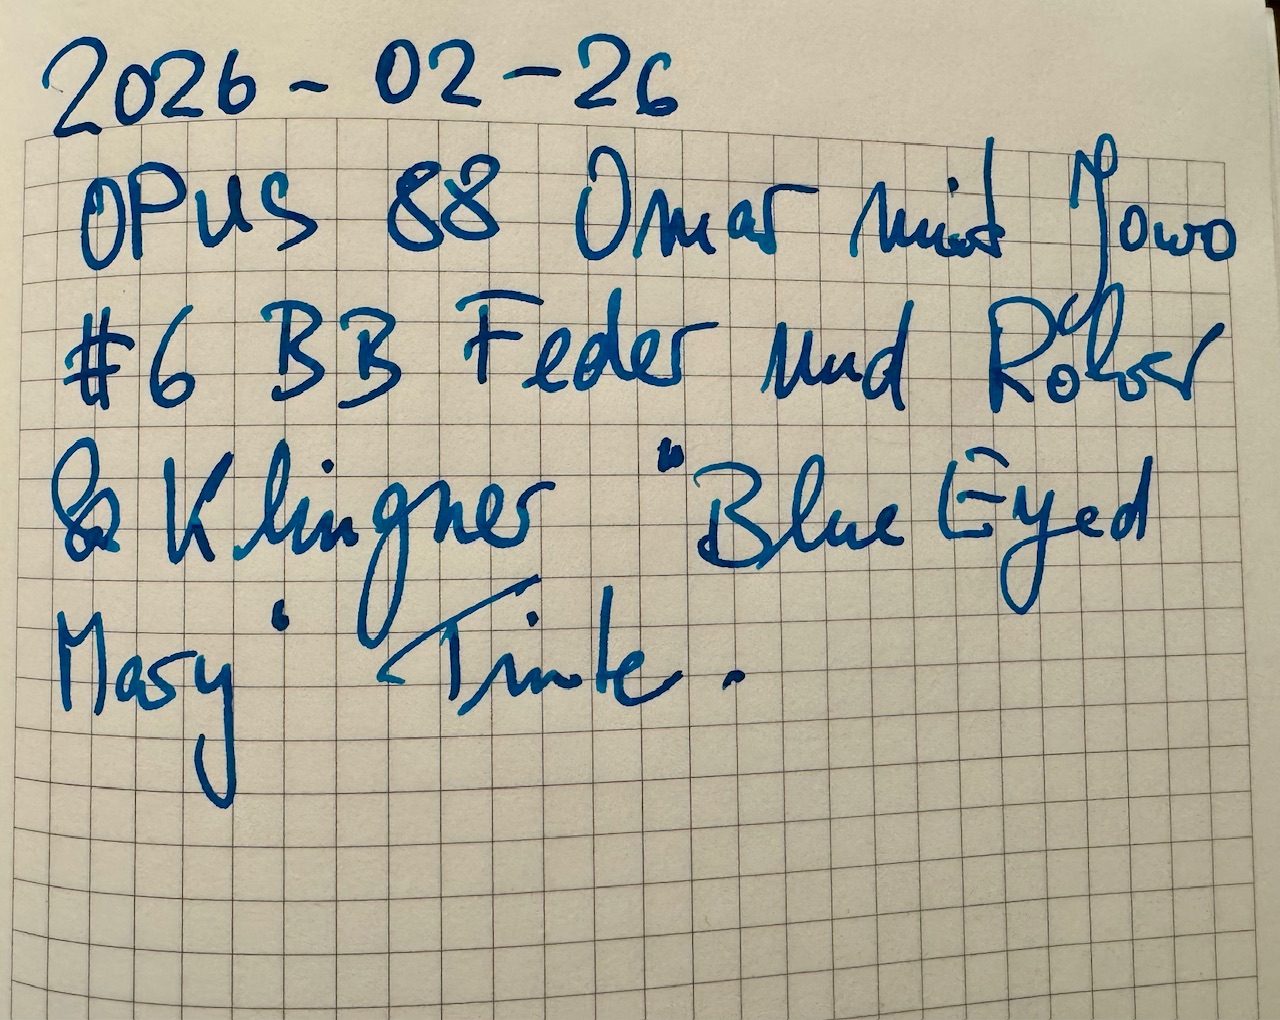 2026-02-26
OPUS 88 Omar mit Jowo
#6 BB Feder und Rohrer
& Klingner "Blue Eyed
Mary" Tinte.